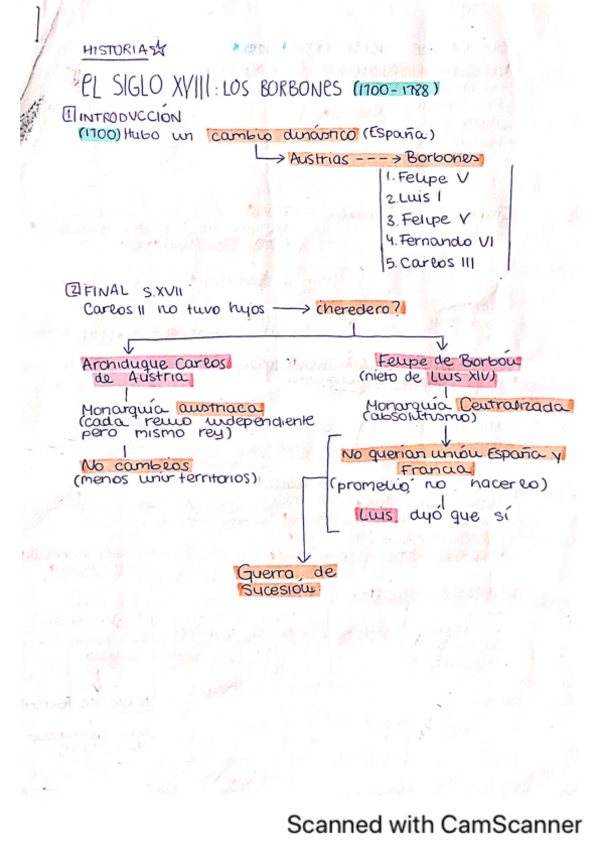 HISTORIA
EL SIGLO XVIII: LOS BORBONES (1700-1788)
1 INTRODUCCIÓN
(1700) Hubo un cambio dinástico (España)
Austrias ---> Borbones
1. Felipe V
2. Luis I
3. Felipe V
4. Fernando VI
5. Carlos III
2 FINAL S.XVII
Carlos II no tuvo hijos → ¿heredero?
Archiduque Carlos
de Austria
Monarquía austriaca
(cada reino independiente
pero mismo rey)
No cambios
(menos unir territorios)
Felipe de Borbón
(nieto de Luis XIV)
Monarquía Centralizada
(absolutismo)
No querían unión España y
Francia
(prometió no hacerlo)
Luis dijo que sí
Guerra de
Sucesión
Scanned with CamScanner